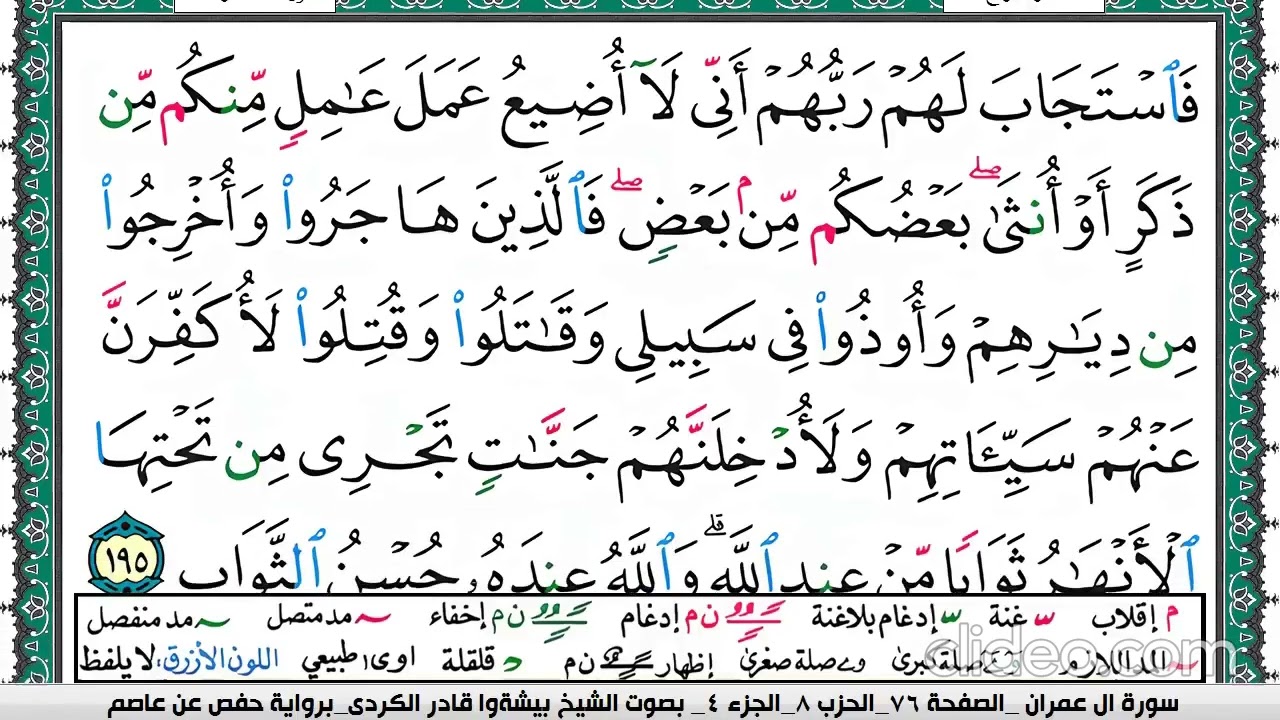 فَٱسْتَجَابَ لَهُمْ رَبُّهُمْ أَنِّى لَآ أُضِيعُ عَمَلَ عَـٰمِلٍ مِّنكُم مِّن
ذَكَرٍ أَوْ أُنثَىٰ ۖ بَعْضُكُم مِّنۢ بَعْضٍ ۖ فَٱلَّذِينَ هَاجَرُوا۟ وَأُخْرِجُوا۟
مِن دِيَـٰرِهِمْ وَأُوذُوا۟ فِى سَبِيلِى وَقَـٰتَلُوا۟ وَقُتِلُوا۟ لَأُكَفِّرَنَّ
عَنْهُمْ سَيِّـَٔاتِهِمْ وَلَأُدْخِلَنَّهُمْ جَنَّـٰتٍ تَجْرِى مِن تَحْتِهَا
ٱلْأَنْهَـٰرُ ثَوَابًا مِّنْ عِندِ ٱللَّهِ ۗ وَٱللَّهُ عِندَهُۥ حُسْنُ ٱلثَّوَابِ ١٩٥
م إقلاب غنة إدغام بلاغنة ن م إدغام ن م إخفاء مد متصل مد منفصل
المد اللازم صلة كبرى صلة صغرى ن م إظهار قلقلة اوى طبيعي اللون الأزرق: لا يلفظ
clideo.com
سورة ال عمران _الصفحة ٧٦_الحزب ٨_الجزء ٤_ بصوت الشيخ بيشةوا قادر الكردى_برواية حفص عن عاصم